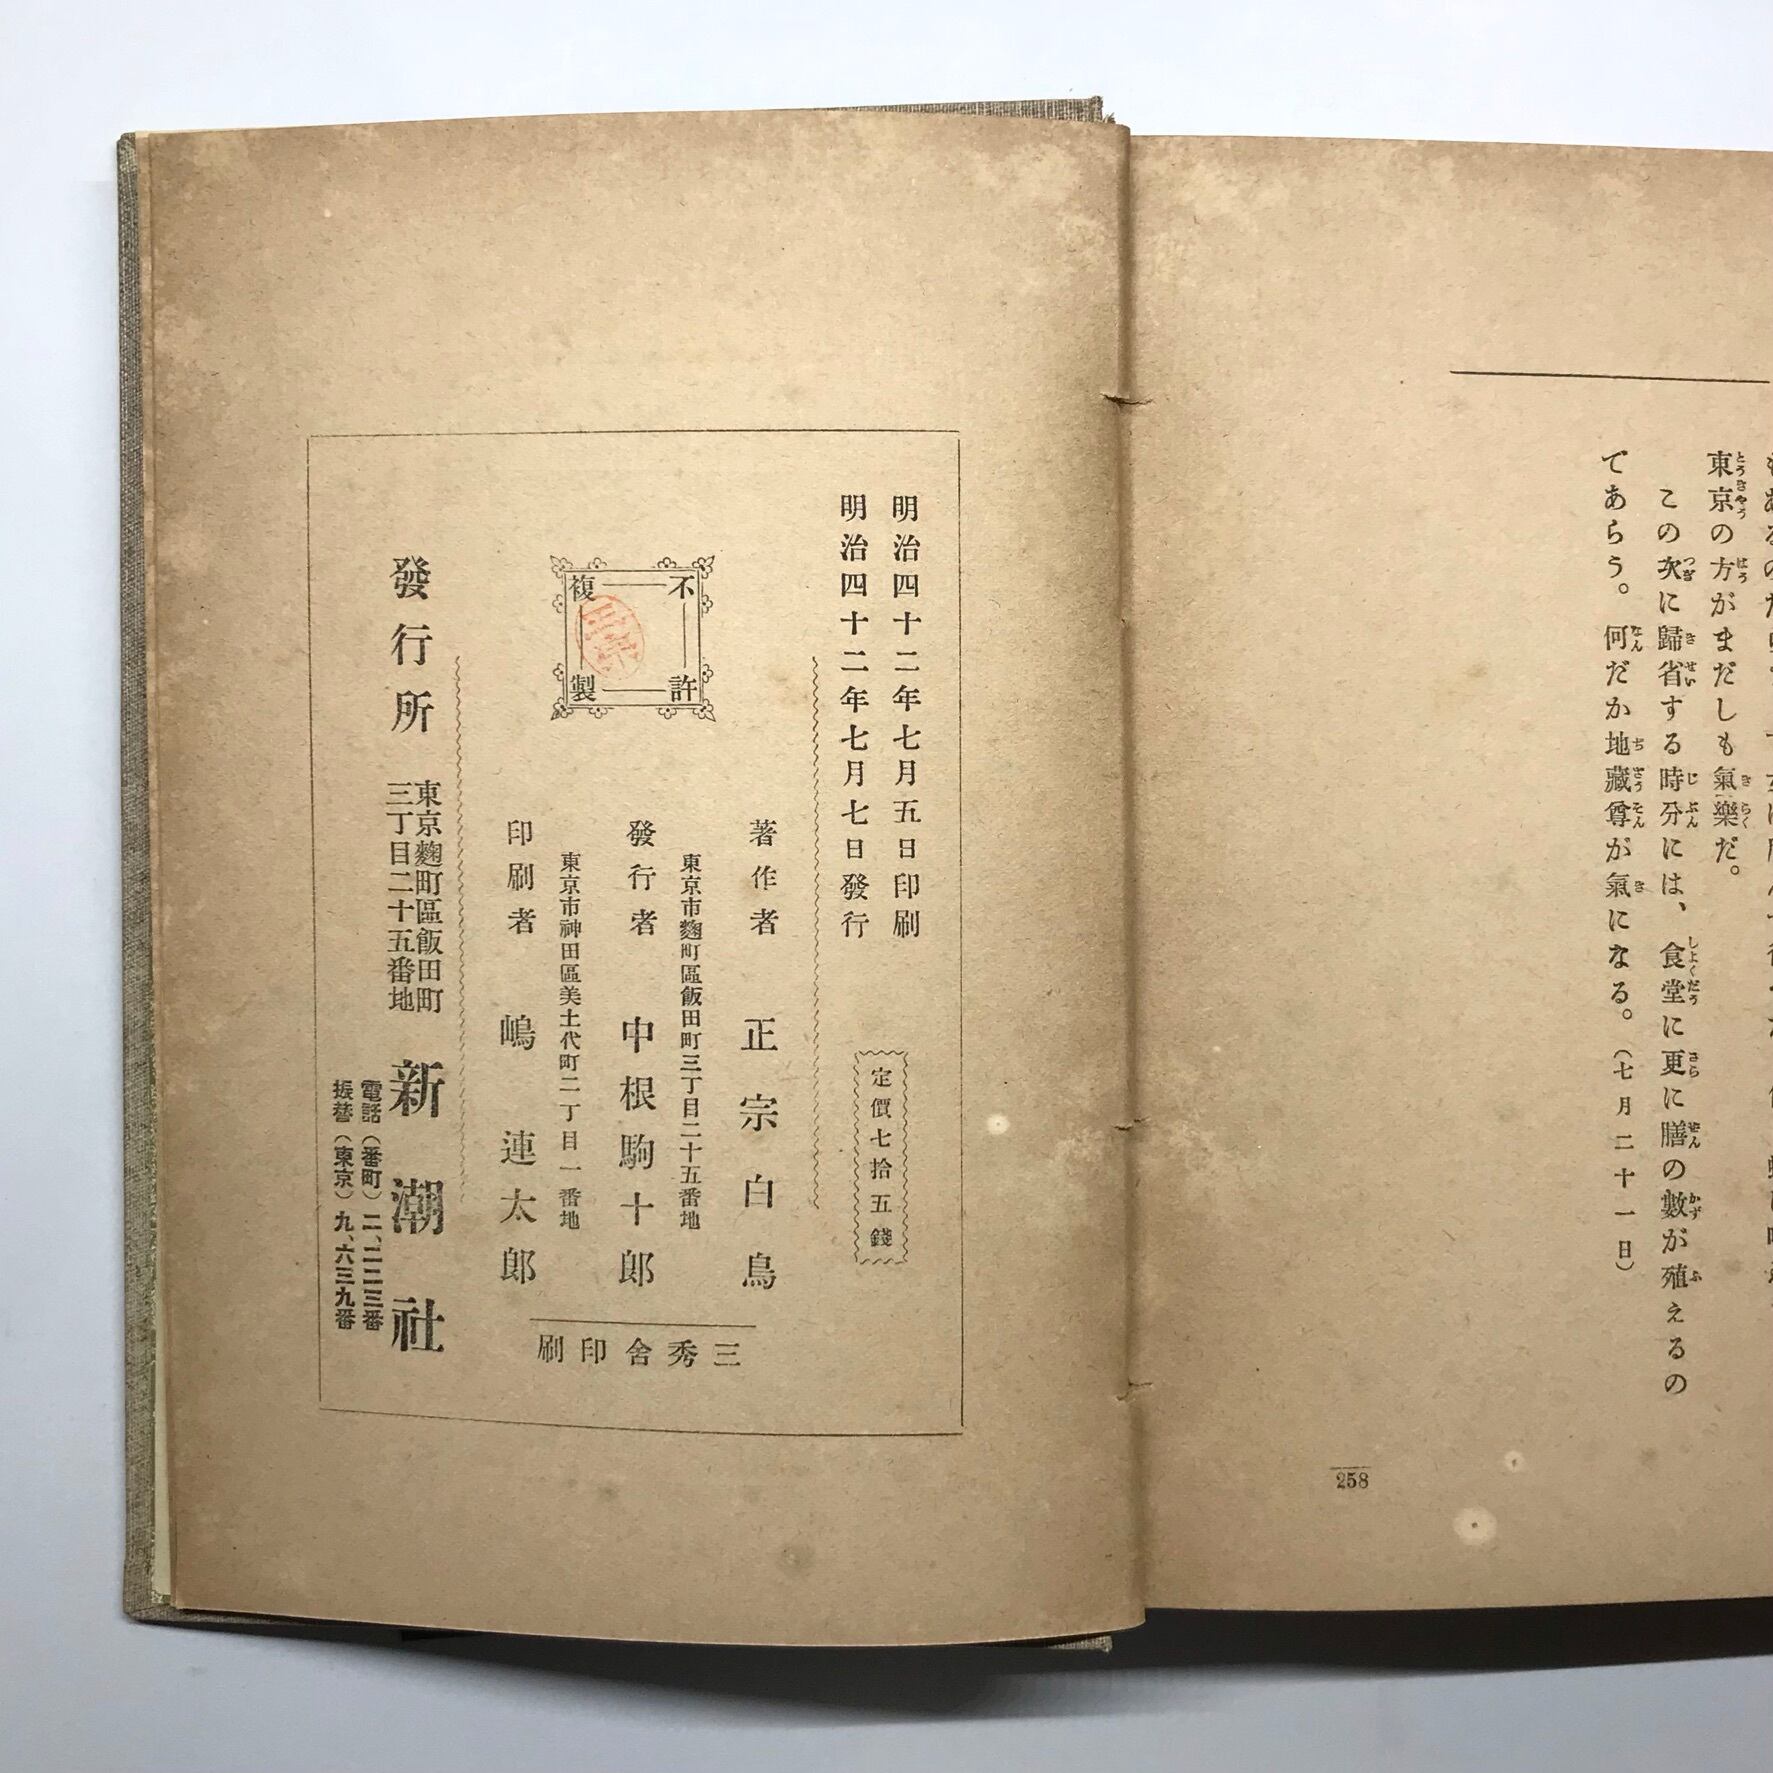 東京の方がまだしも氣樂だ。
この次に歸省する時分には、食堂に更に膳の數が殖えるの
であらう。何だか地藏尊が氣になる。（七月二十一日）
258
明治四十二年七月五日印刷
明治四十二年七月七日發行
定價七拾五錢
不許複製
正宗
著作者 正宗白鳥
東京市麴町區飯田町三丁目二十五番地
發行者 中根駒十郎
東京市神田區美土代町二丁目一番地
印刷者 嶋連太郎
三秀舍印刷
發行所 東京麴町區飯田町三丁目二十五番地 新潮社
電話（番町）二、二二三番
振替（東京）九、六三九番